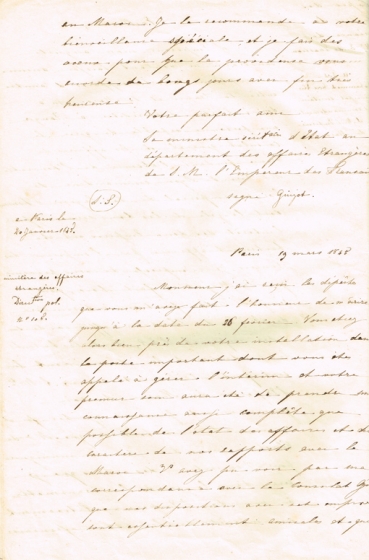 au Maroc. Je la recommande à votre
bienveillance spéciale et je fais des
vœux pour que la providence vous
de longs jours avec fin
heureuse.
Votre parfait ami
Le ministre d'Etat au
département des affaires Etrangères
de S. M. l'Empereur des Francais
signé Guizot.
(L. S.)
à Paris le
20 Janvier 184
Paris 19 mars 184
ministère des affaires
étrangères.
Dectton pol.
n° 
Monsieur, j'ai reçu les dépêches
que vous m'avez fait l'honneur de
jusqu'à la date du 26 février. Vous
bien de votre installation dans
le poste important dont vous êtes
appelé à gérer l'intérim et votre
premier soin a été de prendre
connaissance aussi complète que
possible de l'état des affaires et du
caractère de nos rapports avec le
Maroc. Vous avez pu voir par ma
correspondance avec le Consulat G
que nos dispositions
sont essentiellement amicales et que